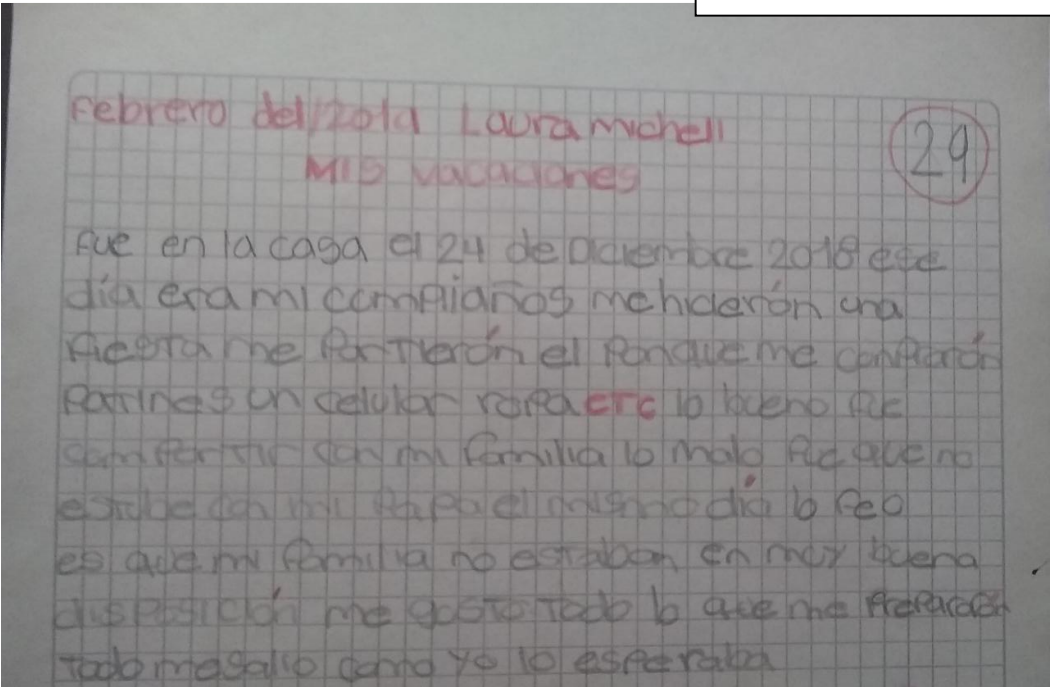 Febrero del 2019 Laura michell
29
Mis vacaciones
fue en la casa el 24 de diciembre 2018 ese
día era mi cumpiaños me hicierón una
fiesta me partierón el ponque me comprarón
patines un celular ropa etc lo bueno fue
compartir con mi familia lo malo fue que no
estube con mi papá el mismo día lo feo
es que mi familia no estaban en muy buena
disposición me gusto todo lo que me prepararón
todo me salio como yo lo esperaba